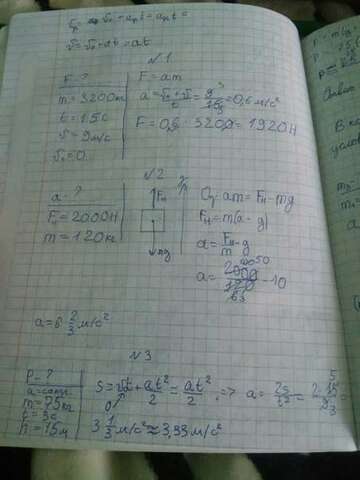 v = v₀ + at = at
№1
F - ?
m = 3200кг
t = 15с
v = 9м/с
v₀ = 0
F = am
a = (v₀ + v)/t = 9/15 = 0,6 м/с²
F = 0,6 · 3200 = 1920Н
№2
a - ?
Fн = 2000Н
m = 120кг
Fн
mg
y
Oy: am = Fн - mg
Fн = m(a - g)
a = Fн/m - g
a = 2000/120 - 10
a = 6 2/3 м/с²
№3
P - ?
a = const
m = 75кг
t = 3с
h = 15м
S = v₀t + at²/2 = at²/2 ⇒ a = 2s/t² =
0
3 1/3 м/с² ≈ 3,33 м/с²